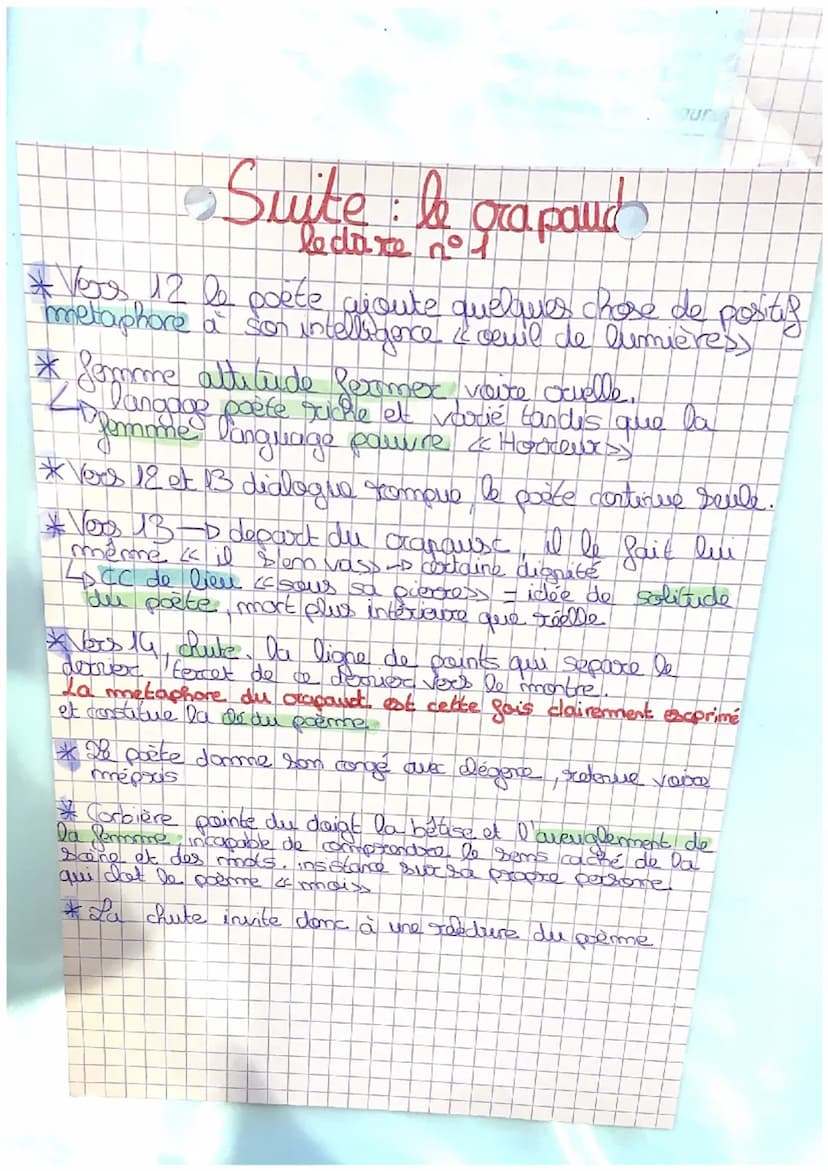 our
Suite : le crapaud
lecture n°1
* Vers 12 le poète ajoute quelques chose de positif
metaphore à son intelligence « oeuil de lumière »
* femme attitude fermer voire cruelle.
↳ langage poète riche et varié tandis que la
femme language pauvre « Horreur »
* Vers 12 et 13 dialogue rompue, le poète continue seule.
* Vers 13 → depart du crapaud, il le fait lui
même « il s'en va » → certaine dignité
↳ CC de lieu « sous sa pierre » = idée de solitude
du poète, mort plus intérieure que réelle
* Vers 14, chute. la ligne de points qui separe le
dernier tercet de ce dernier vers le montre.
La metaphore du crapaud est cette fois clairement exprimé
et constitue la clé du poème.
* Le poète donne son congé avec , retenue voire
mépris
* Corbière pointe du doigt la bêtise et l'aveuglement de
la femme, incapable de comprendre le sens caché de la
scène et des mots. insistance sur sa propre personne
qui clot le poème « moi »
* La chute invite donc à une relecture du poème